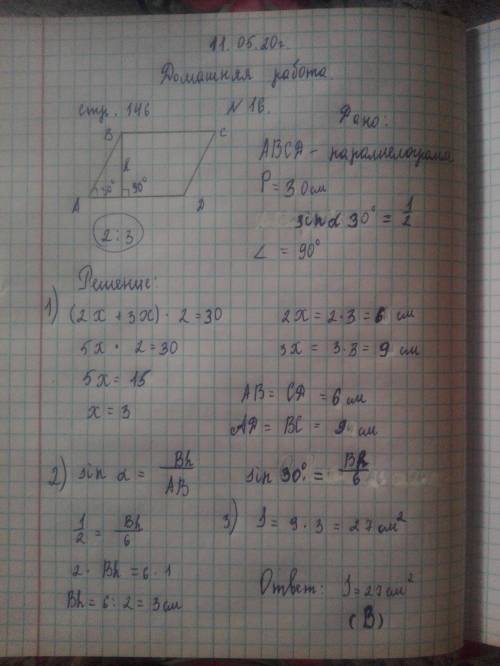 11.05.20г.
Домашняя работа.
стр. 146 N 16.
B C
h
30° 90°
A D
2:3
Дано:
ABCD - параллелограмм
P = 30 см
sin α 30° = 1/2
∠ = 90°
Решение:
1) (2x + 3x) · 2 = 30
5x · 2 = 30
5x = 15
x = 3
2x = 2 · 3 = 6 см
3x = 3 · 3 = 9 см
AB = CD = 6 см
AD = BC = 9 см
2) sin α = Bh/AB
sin 30° = Bh/6
1/2 = Bh/6
2 · Bh = 6 · 1
Bh = 6 : 2 = 3 см
3) S = 9 · 3 = 27 см²
Ответ: S = 27 см²
(B)